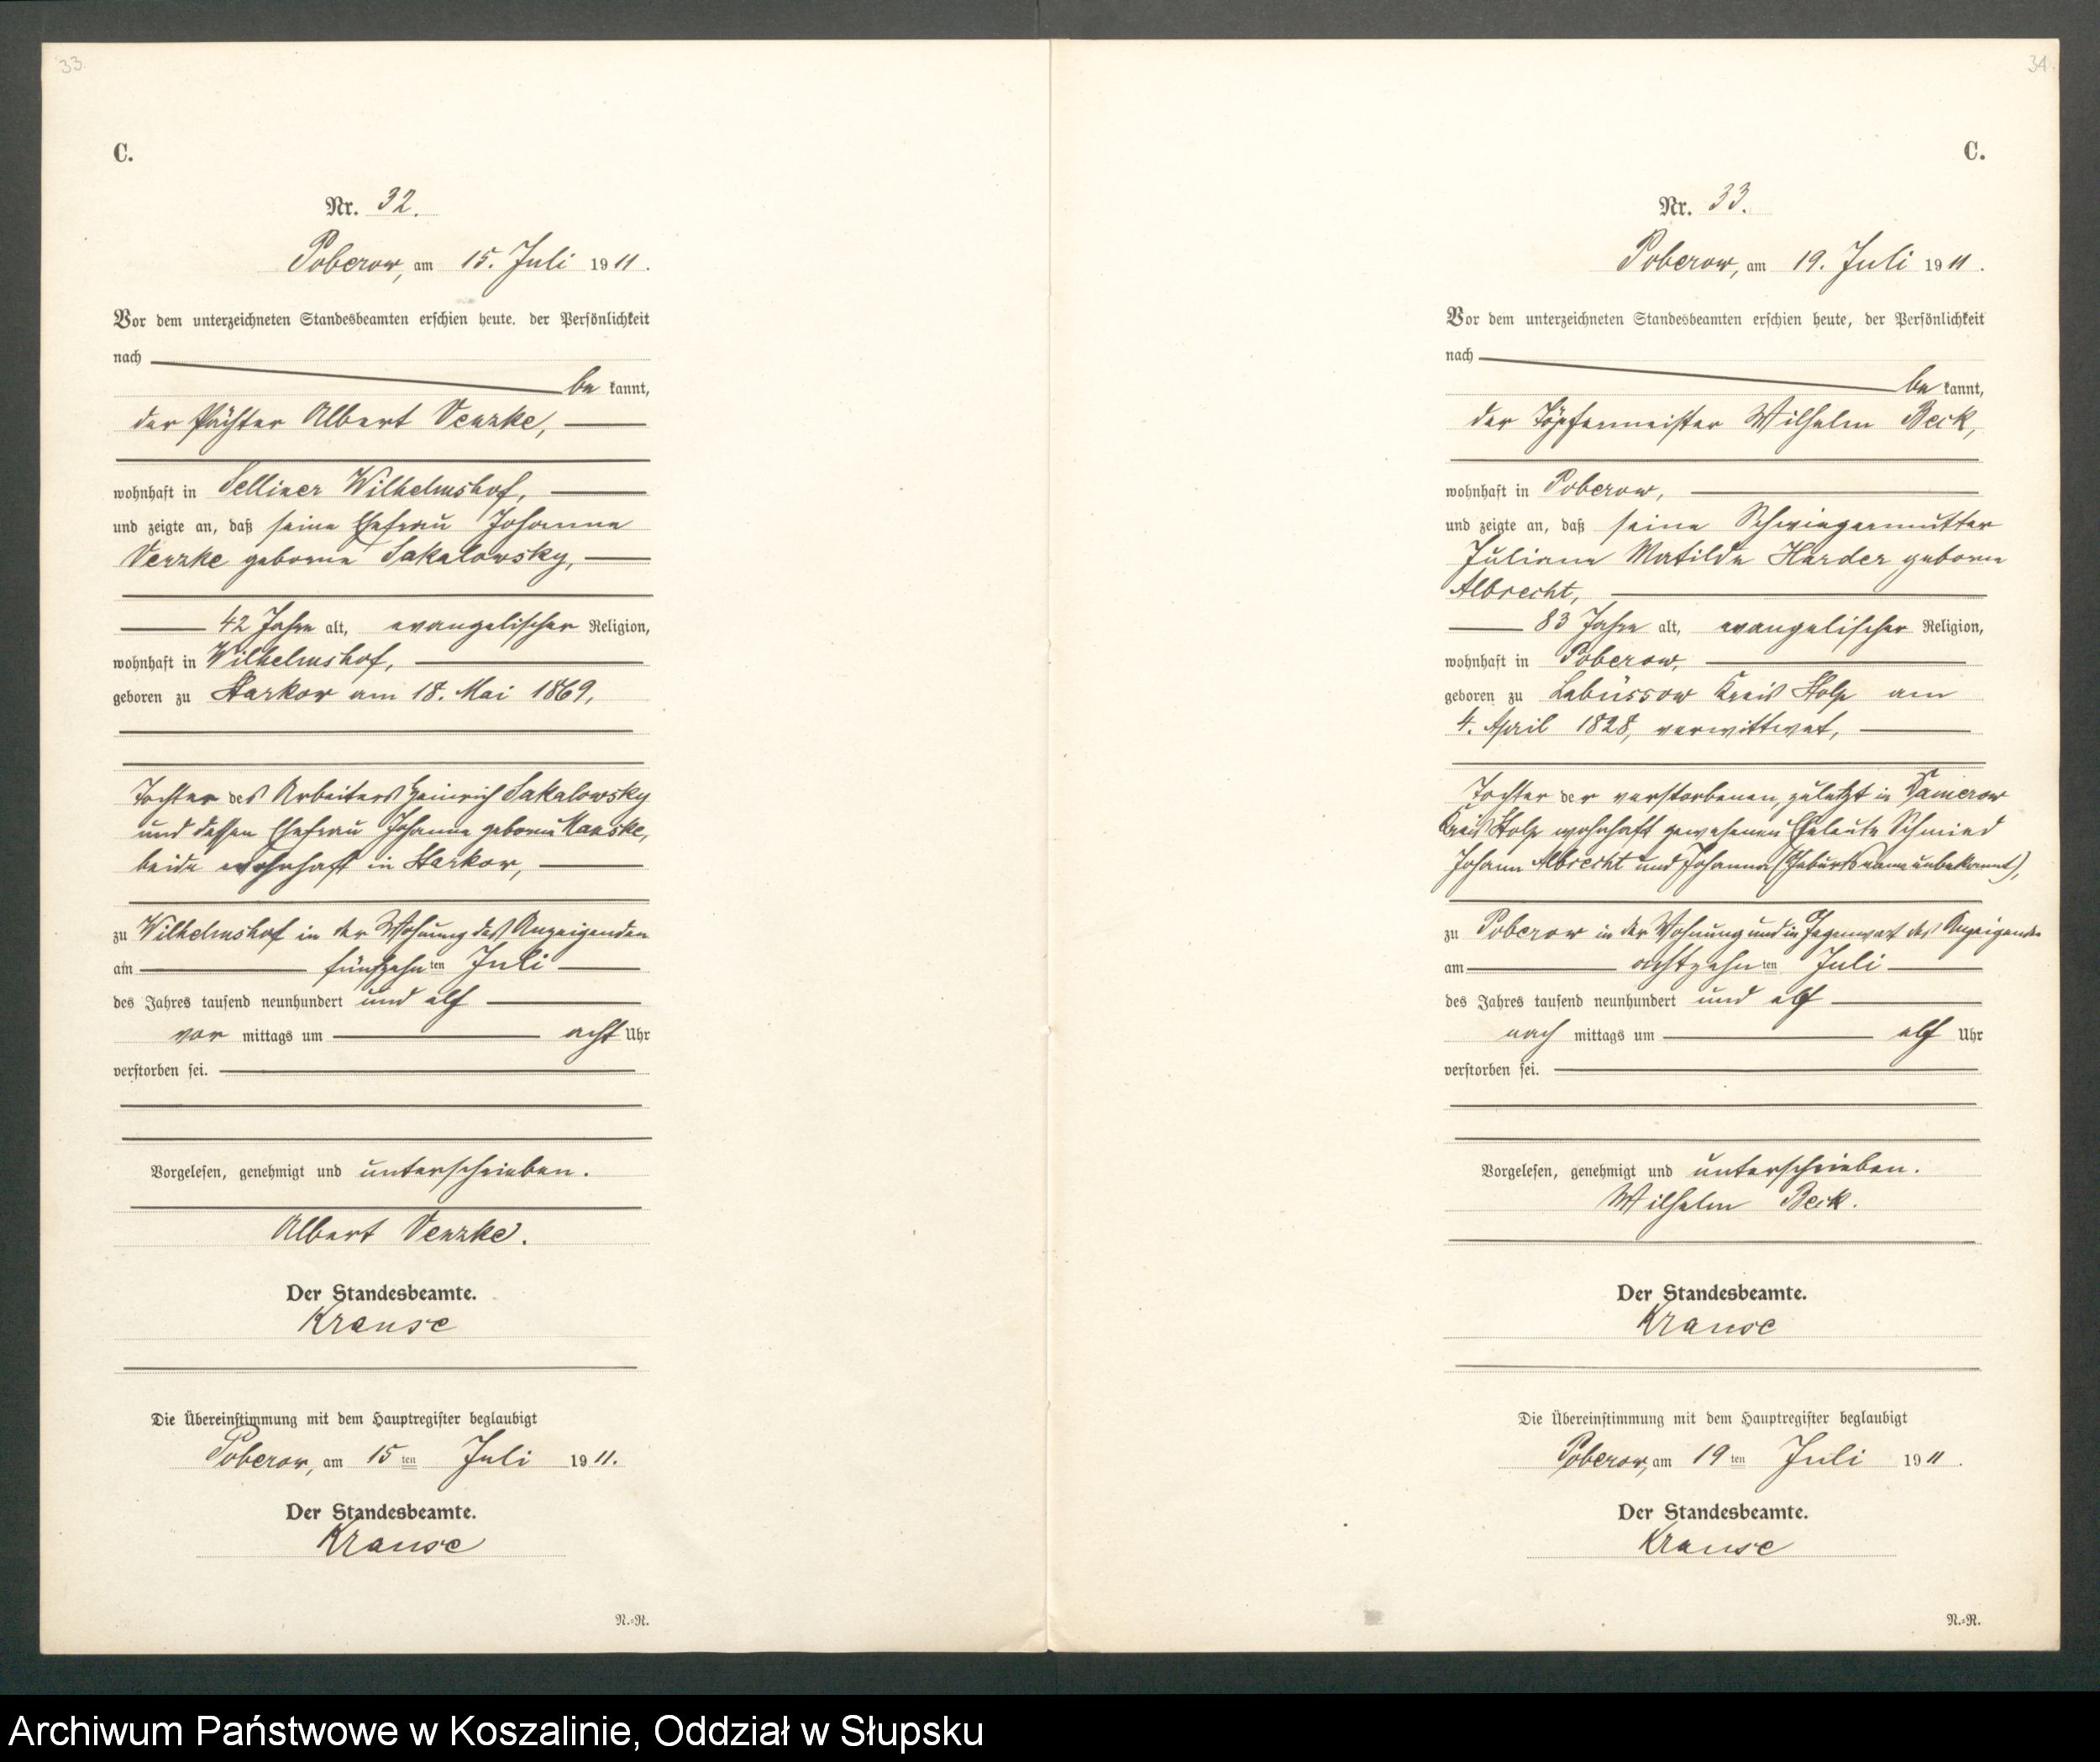 33.
C.
Nr. 32.
Poberow, am 15. Juli 1911.
Vor dem unterzeichneten Standesbeamten erschien heute, der Persönlichkeit
nach
be kannt,
der Pächter Albert Venzke,
wohnhaft in Selliner Wilhelmshof,
und zeigte an, daß seine Ehefrau Johanna
Venzke geborne Sakalowsky,
42 Jahre alt, evangelischer Religion,
wohnhaft in Wilhelmshof,
geboren zu Starkow am 18. Mai 1869,
Tochter des Arbeiters Heinrich Sakalowsky
und dessen Ehefrau Johanna geborne
beide wohnhaft in Starkow,
zu Wilhelmshof in der Wohnung des Anzeigenden
am fünfzehnten Juli
des Jahres tausend neunhundert und elf
vor mittags um acht Uhr
verstorben sei.
Vorgelesen, genehmigt und unterschrieben.
Albert Venzke.
Der Standesbeamte.
Krause
Die Übereinstimmung mit dem Hauptregister beglaubigt
Poberow, am 15ten Juli 1911.
Der Standesbeamte.
Krause
N.=N.
34.
C.
Nr. 33.
Poberow, am 19. Juli 1911.
Vor dem unterzeichneten Standesbeamten erschien heute, der Persönlichkeit
nach
be kannt,
der Töpfermeister Wilhelm Beck,
wohnhaft in Poberow,
und zeigte an, daß seine Schwiegermutter
Juliane Matilde Harder geborne
Albrecht,
83 Jahre alt, evangelischer Religion,
wohnhaft in Poberow,
geboren zu Labüssow Kreis Stolp am
4. April 1828, verwittwet,
Tochter der verstorbenen, zuletzt in
Kreis Stolp wohnhaft gewesenen Eheleute Schmied
Johann Albrecht und Johanna (Geburtsname unbekannt),
zu Poberow in der Wohnung und in Gegenwart des Anzeigenden
am achtzehnten Juli
des Jahres tausend neunhundert und elf
nach mittags um elf Uhr
verstorben sei.
Vorgelesen, genehmigt und unterschrieben.
Wilhelm Beck.
Der Standesbeamte.
Krause
Die Übereinstimmung mit dem Hauptregister beglaubigt
Poberow, am 19ten Juli 1911.
Der Standesbeamte.
Krause
N.=N.
Archiwum Państwowe w Koszalinie, Oddział w Słupsku